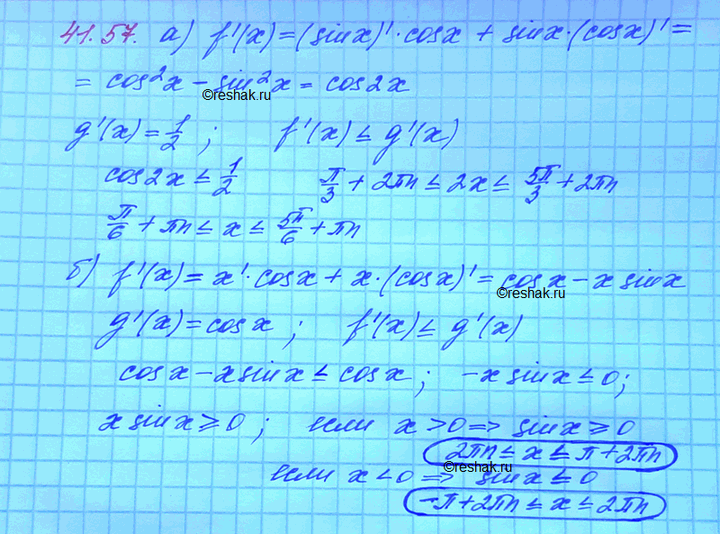 41.57. а) f'(x) = (sinx)'·cosx + sinx·(cosx)' =
= cos²x – sin²x = cos2x
©reshak.ru
g'(x) = 1/2 ; f'(x) ≤ g'(x)
cos2x ≤ 1/2 π/3 + 2πn ≤ 2x ≤ 5π/3 + 2πn
π/6 + πn ≤ x ≤ 5π/6 + πn
б) f'(x) = x'·cosx + x·(cosx)' = cosx – x sinx
©reshak.ru
g'(x) = cosx ; f'(x) ≤ g'(x)
cosx – x sinx ≤ cosx ; –x sinx ≤ 0 ;
x sinx ≥ 0 ; если x > 0 ⇒ sinx ≥ 0
2πn ≤ x ≤ π + 2πn
©reshak.ru
если x < 0 ⇒ sinx ≤ 0
–π + 2πn ≤ x ≤ 2πn